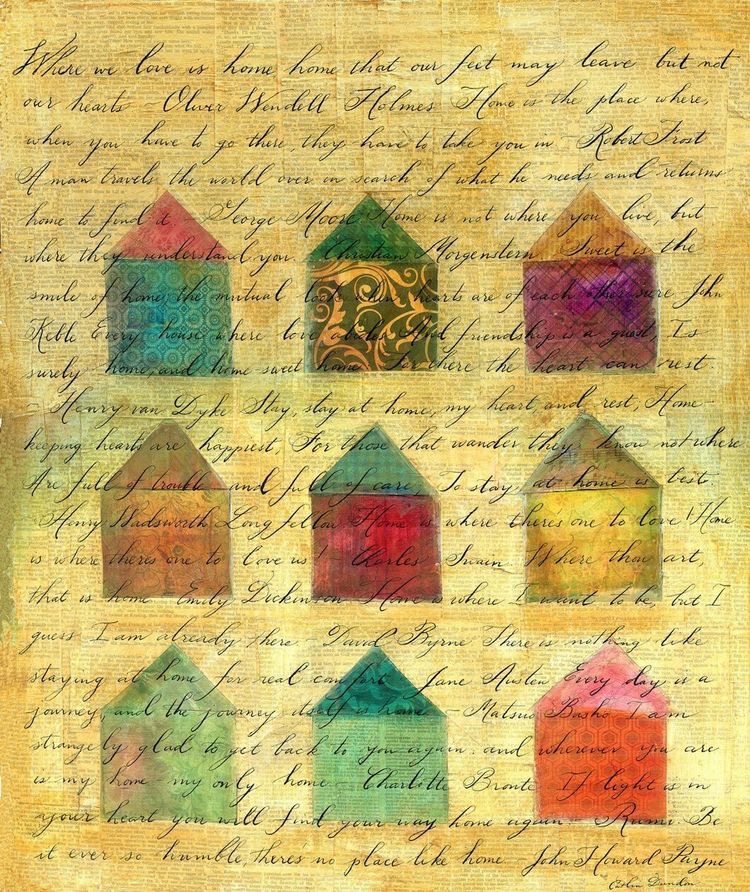 Where we love is home, home that our feet may leave but not
our hearts - Oliver Wendell Holmes Home is the place where,
when you have to go there, they have to take you in - Robert Frost
A man travels the world over in search of what he needs and returns
home to find it - George Moose Home is not where you live, but
where they understand you Christian Morgenstern Sweet is the
smile of home; the mutual look when hearts are of each other sure John
Keble Every house where love abides And friendship is a guest, Is
surely home, and home sweet home For there the heart can rest.
- Henry van Dyke Stay, stay at home, my heart, and rest, Home-
keeping hearts are happiest, For those that wander they know not where
Are full of trouble and full of care, To stay at home is best
- Henry Wadsworth Longfellow Home is where theres one to love! Home
is where theres one to love us! Charles Swain Where thou art,
that is home Emily Dickinson - Home is where I want to be, but I
guess I am already there - David Byrne There is nothing like
staying at home for real comfort Jane Austen Every day is a
journey, and the journey itself is home - Matsuo Basho I am
strangely glad to get back to you again: and wherever you are
is my home - my only home - Charlotte Bronte If light is in
your heart you will find your way home again - Rumi. Be
it ever so humble, there's no place like home - John Howard Payne